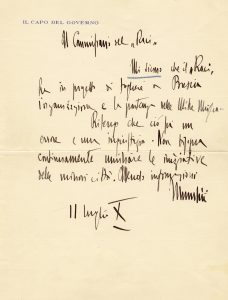 IL CAPO DEL GOVERNO
Al Commissario del "Raci"
Mi dicono che il "Raci"
ha in progetto di togliere a Brescia
l'organizzazione e la partenza delle Mille Miglia.
Ritengo che ciò sia un
errore e una ingiustizia. Non bisogna
continuamente umiliare le iniziative
delle minori città. Attendo informazioni
Mussolini
11 luglio X